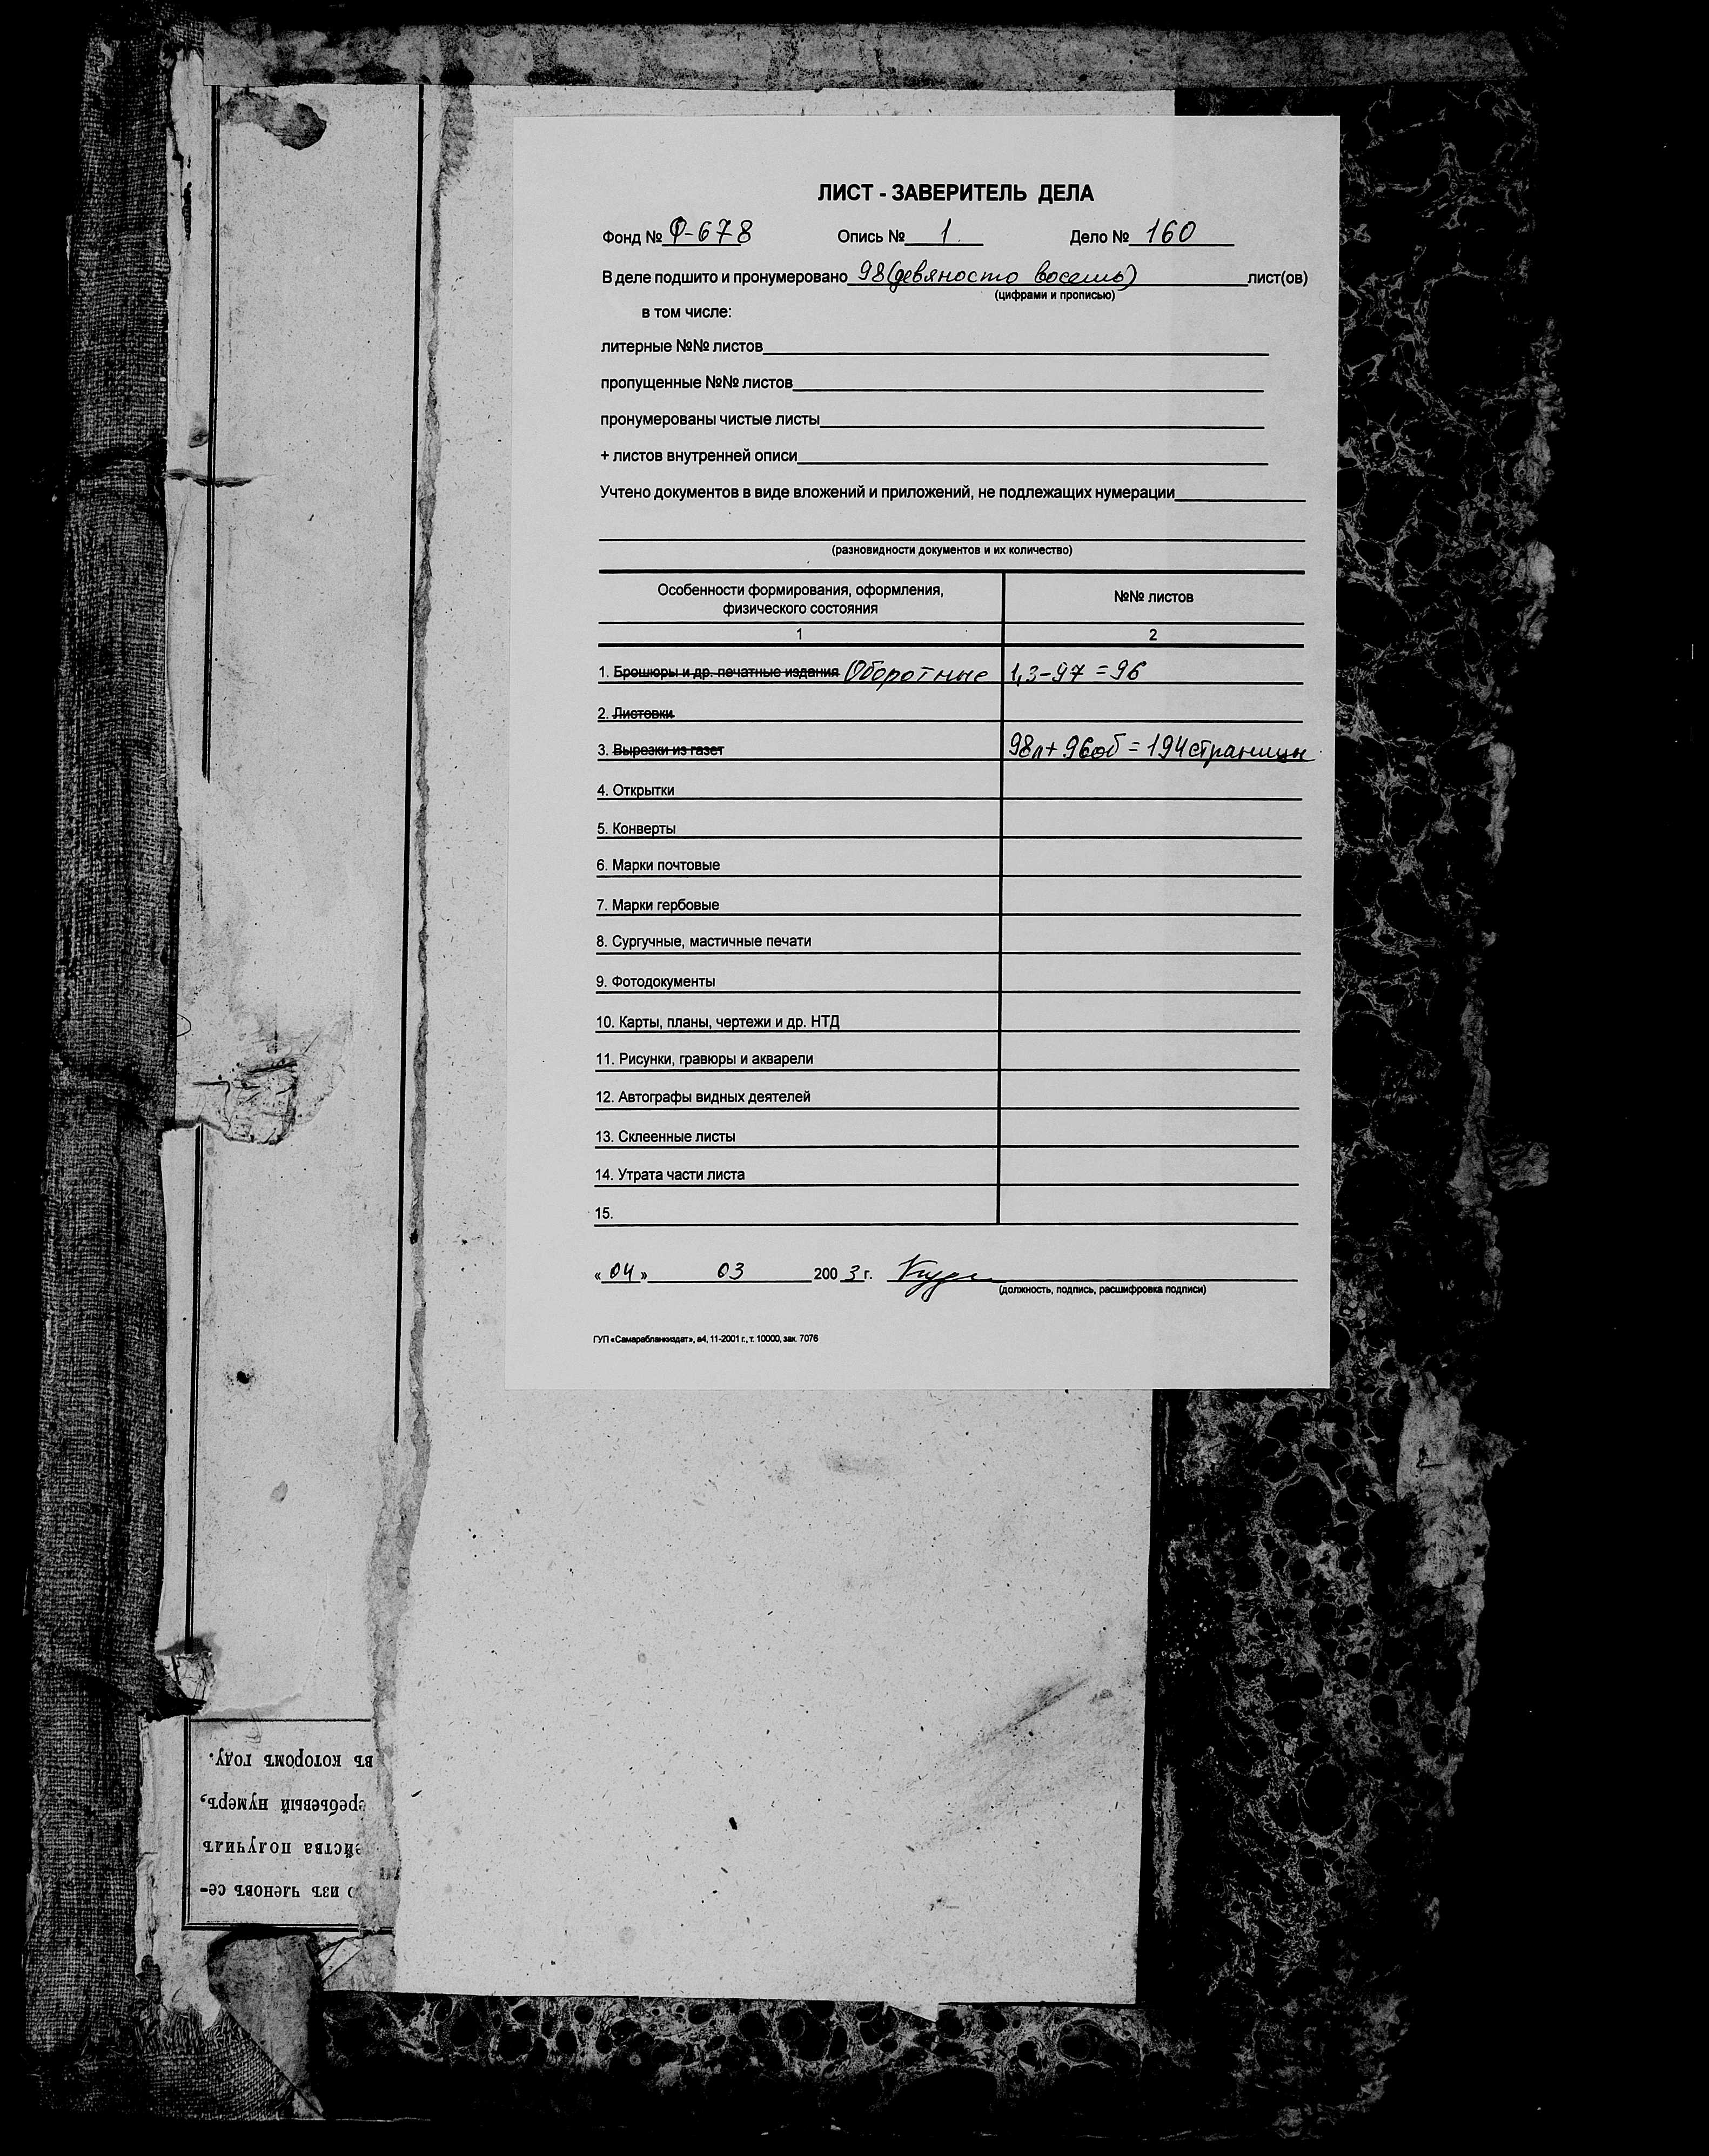 ЛИСТ - ЗАВЕРИТЕЛЬ ДЕЛА
Фонд № Ф-678 Опись № 1 Дело № 160
В деле подшито и пронумеровано 98 (девяносто восемь) лист(ов)
(цифрами и прописью)
в том числе:
литерные №№ листов
пропущенные №№ листов
пронумерованы чистые листы
+ листов внутренней описи
Учтено документов в виде вложений и приложений, не подлежащих нумерации
(разновидности документов и их количество)
Особенности формирования, оформления,
физического состояния
№№ листов
1 2
1. Брошюры и др. печатные издания Оборотные 1,3-97 = 96
2. Листовки
3. Вырезки из газет 98л + 96об = 194 страницы
4. Открытки
5. Конверты
6. Марки почтовые
7. Марки гербовые
8. Сургучные, мастичные печати
9. Фотодокументы
10. Карты, планы, чертежи и др. НТД
11. Рисунки, гравюры и акварели
12. Автографы видных деятелей
13. Склеенные листы
14. Утрата части листа
15.
« 04 » 03 200 3 г.
(должность, подпись, расшифровка подписи)
ГУП «Самарабланкиздат», а4, 11-2001 г., т. 10000, зак. 7076
изъ членовъ се-
ейства получилъ
еребьевый нумеръ,
въ которомъ году.